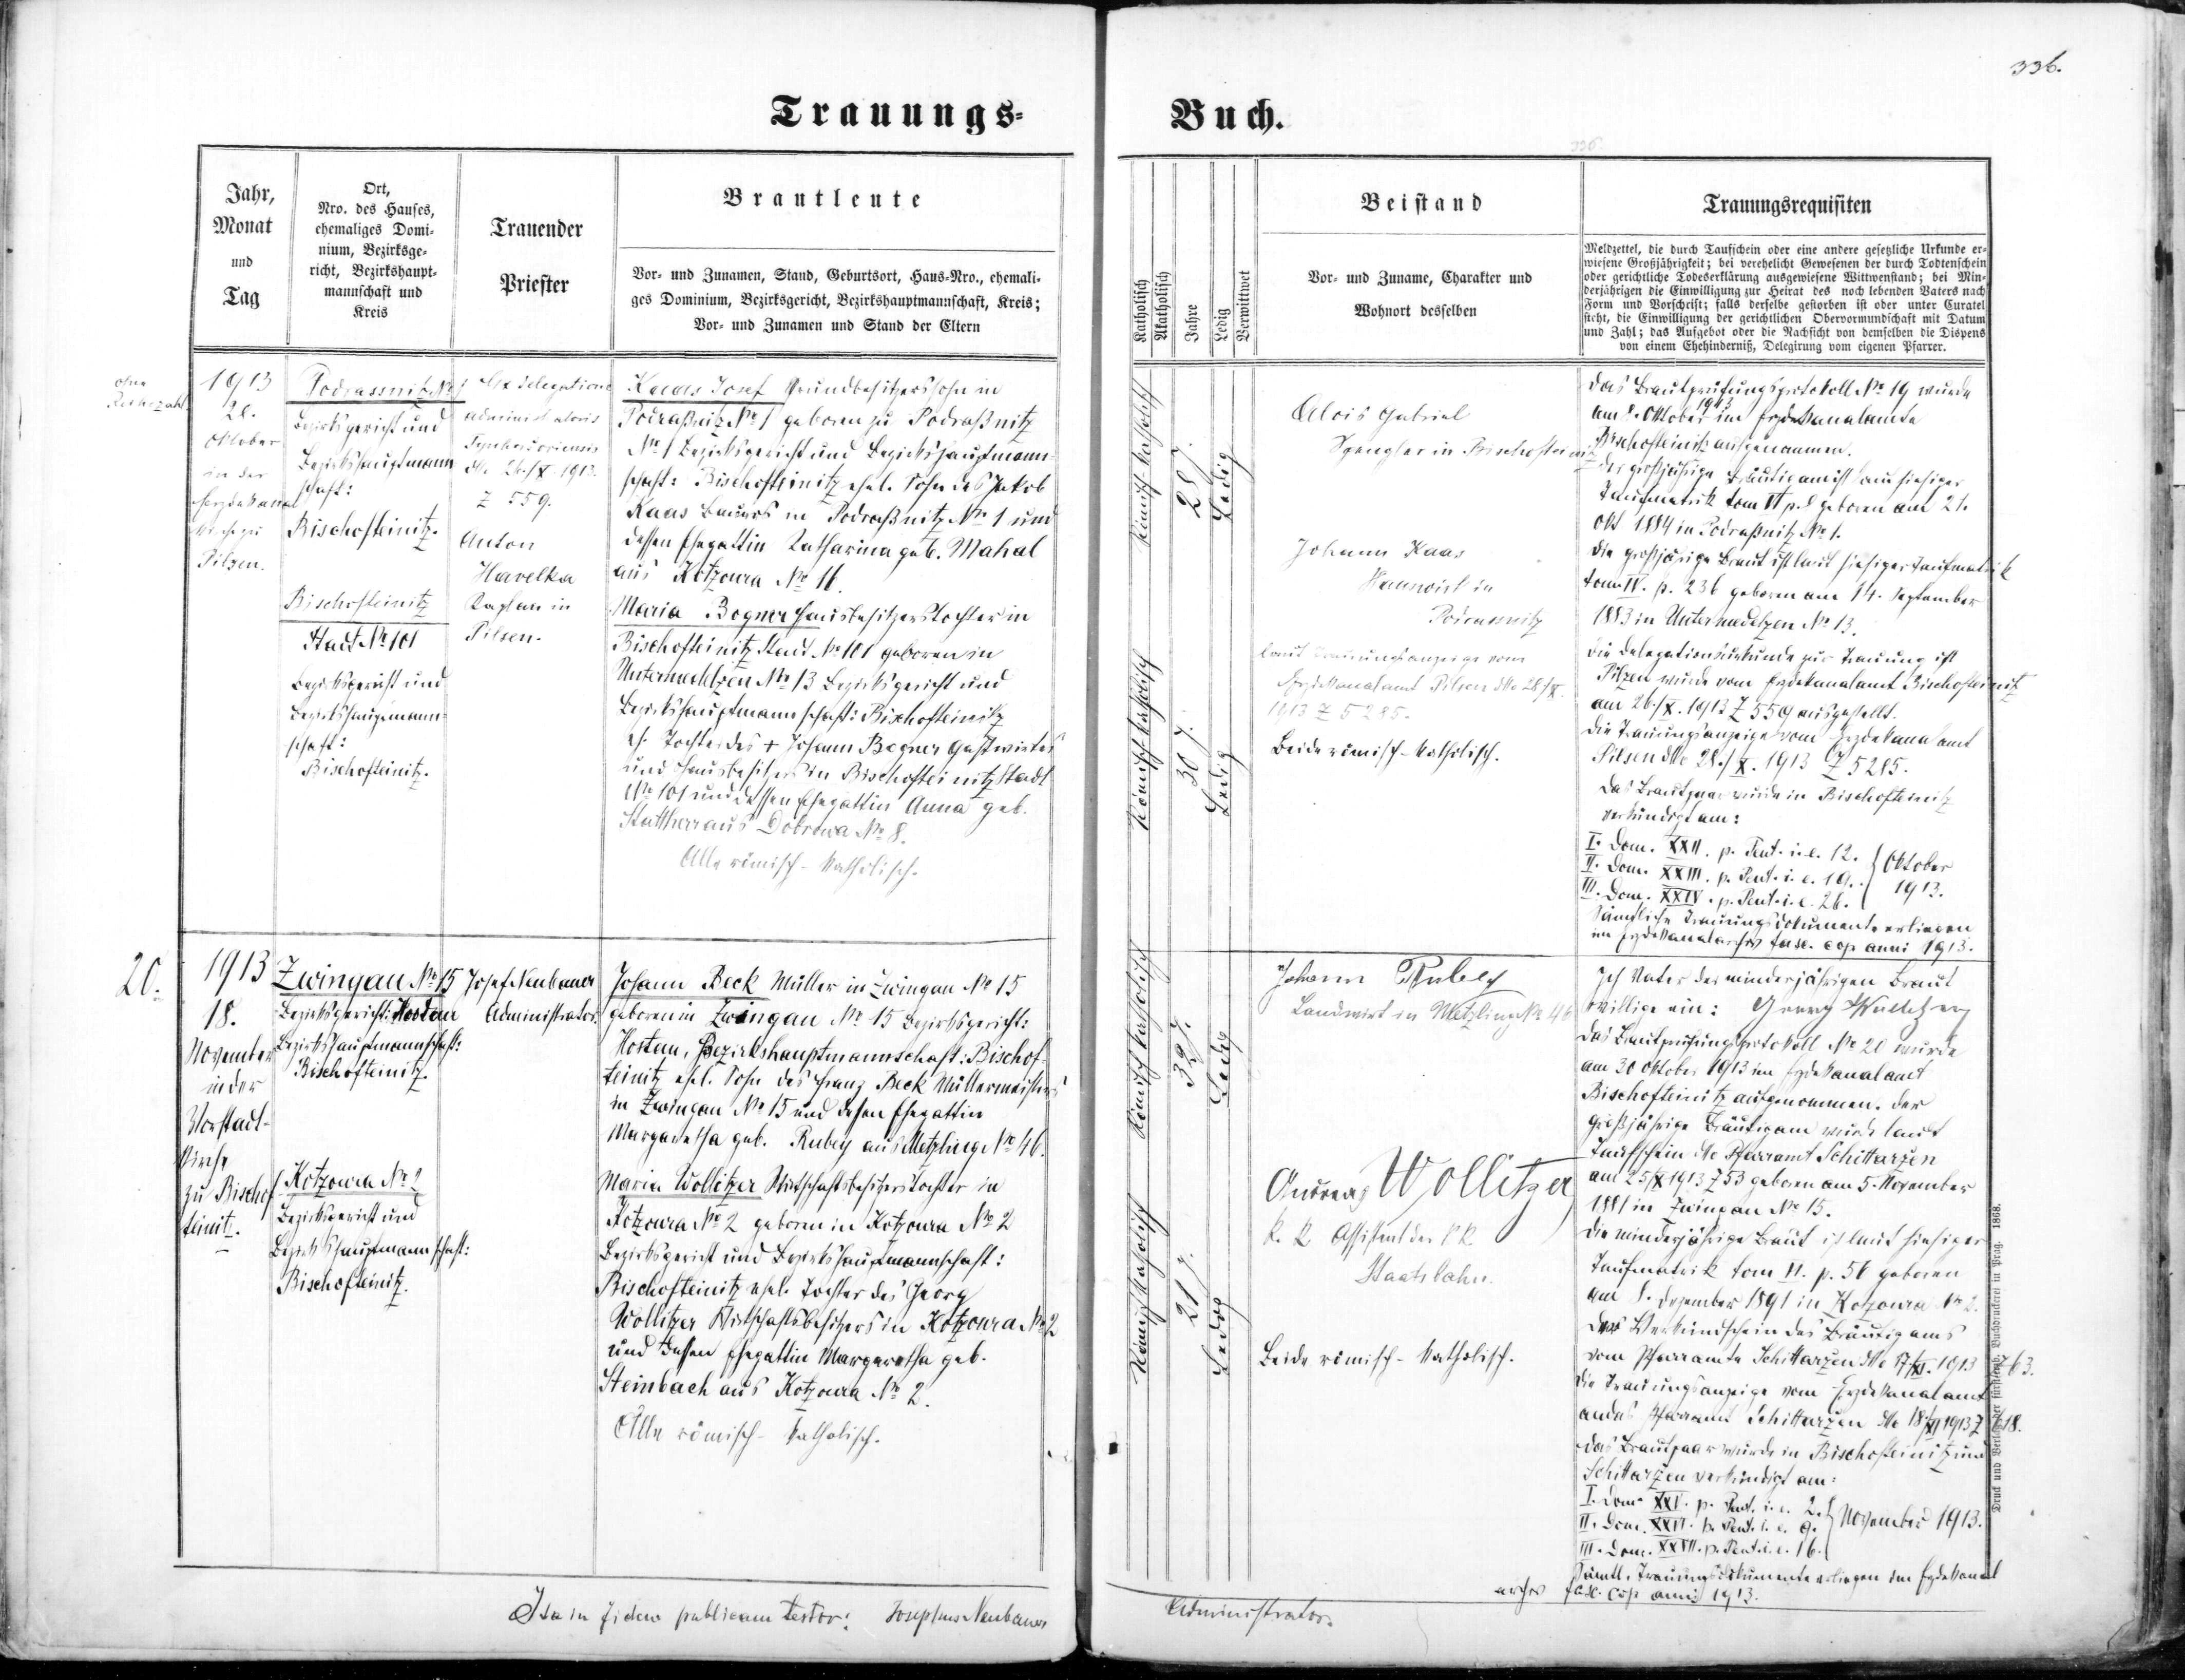 336.
Trauungs-
Buch.
336.
Jahr,
Monat
und
Tag
Ort,
Nro. des Hauses,
ehemaliges Domi-
nium, Bezirksge-
richt, Bezirkshaupt-
mannschaft und
Kreis
Trauender
Priester
Brautleute
Vor- und Zunamen, Stand, Geburtsort, Haus-Nro., ehemali-
ges Dominium, Bezirksgericht, Bezirkshauptmannschaft, Kreis;
Vor- und Zunamen und Stand der Eltern
Katholisch
Akatholisch
Jahre
Ledig
Verwittwet
Beistand
Vor- und Zuname, Charakter und
Wohnort desselben
Trauungsrequisiten
Meldzettel, die durch Taufschein oder eine andere gesetzliche Urkunde er-
wiesene Großjährigkeit; bei verehelicht Gewesenen der durch Todtenschein
oder gerichtliche Todeserklärung ausgewiesene Wittwenstand; bei Min-
derjährigen die Einwilligung zur Heirat des noch lebenden Vaters nach
Form und Vorschrift; falls derselbe gestorben ist oder unter Curatel
steht, die Einwilligung der gerichtlichen Obervormundschaft mit Datum
und Zahl; das Aufgebot oder die Nachsicht von demselben die Dispens
von einem Ehehinderniß, Delegirung vom eigenen Pfarrer.
ohne
Reihezahl
1913
28.
Oktober
in der
Erzdekanal
kirche zu
Pilsen.
Podrassnitz No 1
Bezirksgericht und
Bezirkshauptmann
schaft:
Bischofteinitz.
Bischofteinitz
Stadt No 101
Bezirksgericht und
Bezirkshauptmann-
schaft:
Bischofteinitz.
Ex delegatione
administratoris
ddo. 26./X. 1913.
Z 559.
Anton
Havelka
Kaplan in
Pilsen.
Kaas Josef Grundbesitzerssohn in
Podraßnitz No 1 geboren zu Podraßnitz
No 1 Bezirksgericht und Bezirkshauptmann-
schaft: Bischofteinitz ehel. Sohn des Jakob
Kaas Bauers in Podraßnitz No 1 und
dessen Ehegattin Katharina geb. Mahal
aus Kotzoura No 16.
Maria Bogner Hausbesitzerstochter in
Bischofteinitz Stadt No 101 geboren in
Untermedelzen No 13 Bezirksgericht und
Bezirkshauptmannschaft: Bischofteinitz
eh. Tochter des + Johann Bogner Gastwirtes
und Hausbesitzers in Bischofteinitz Stadt
No 101 und dessen Ehegattin Anna geb.
aus Dobrowa No 8.
Alle römisch-katholisch.
Römisch-katholisch
28 J.
Ledig
Römisch-katholisch
30 J.
Ledig
Alois Gabriel
Spengler in Bischofteinitz
Johann Kaas
Landwirt in
Podrassnitz
laut Trauungsanzeige vom
Erzdekanalamt Pilsen ddo 28./X.
1913 Z 5285.
Beide römisch-katholisch.
Das Brautprüfungsprotokoll No 19 wurde
am 8. Oktober 1913 im Erzdekanalamte
Bischofteinitz aufgenommen.
Der großjährige Bräutigam ist laut hiesiger
Taufmatrik tom geboren am 21.
Okt 1884 in Podraßnitz No 1.
Die großjährige Braut ist laut hiesiger Taufmatrik
tom. IV. p. 236 geboren am 14. September
1883 in Untermedelzen No 13.
Die Delegationsurkunde zur Trauung ist
Pilsen wurde vom Erzdekanalamt Bischofteinitz
am 26./X. 1913 Z 559 ausgestellt.
Die Trauungsanzeige vom Erzdekanalamt
Pilsen ddo 28./X. 1913 Z 5285.
Das Brautpaar wurde in Bischofteinitz
verkündigt am:
I. Dom. XXII. p. Pent. i. e. 12.
II. Dom. XXIII. p. Pent. i. e. 19.
III. Dom. XXIV. p. Pent. i. e. 26.
Oktober
1913.
Sämtliche Trauungsdokumente erliegen
im Erzdekanalarchiv fasc. cop anni 1913.
20.
1913
18.
November
in der
Vorstadt-
kirche
zu Bischof
teinitz.
Zwingau No 15
Bezirksgericht: Hostau
Bezirkshauptmannschaft:
Bischofteinitz.
Kotzoura No 2
Bezirksgericht und
Bezirkshauptmannschaft:
Bischofteinitz.
Josef Neubauer
Administrator.
Johann Beck Müller in Zwingau No 15
geboren in Zwingau No 15 Bezirksgericht:
Hostau, Bezirkshauptmannschaft: Bischof-
teinitz ehel. Sohn des Franz Beck Müllermeisters
in Zwingau No 15 und dessen Ehegattin
Margaretha geb. Rubey aus Metzling No 46.
Maria Wollitzer Wirtschaftsbesitzerstochter in
Kotzoura No 2 geboren in Kotzoura No 2
Bezirksgericht und Bezirkshauptmannschaft:
Bischofteinitz ehel. Tochter des Georg
Wollitzer Wirtschaftsbesitzers in Kotzoura No 2
und dessen Ehegattin Margaretha geb.
Steinbach aus Kotzoura No 2.
Alle römisch-katholisch.
Römisch katholisch
32 J.
Ledig
Römisch katholisch
21 J.
Ledig
Johann Rubey
Landwirt in Metzling No 46
Andreas Wollitzer
k. k. Assistent der k k
Staatsbahn.
Beide römisch-katholisch.
Ich Vater der minderjährigen Braut
willige ein: Georg Wollitzer
Das Brautprüfungsprotokoll No 20 wurde
am 30 Oktober 1913 im Erzdekanalamt
Bischofteinitz aufgenommen. Der
großjährige Bräutigam wurde laut
Taufschein ddo Pfarramt Schittarzen
am 25/X 1913 Z 53 geboren am 5. November
1881 in Zwingau No 15.
Die minderjährige Braut ist laut hiesiger
Taufmatrik tom VI. p. 56 geboren
am 8. Dezember 1891 in Kotzoura No 2.
Der Verkündschein des Bräutigams
vom Pfarramte Schittarzen ddo 17/XI. 1913 Z 63.
Die Trauungsanzeige vom Erzdekanalamt
an das Pfarramt Schittarzen ddo 18/XI 1913 Z 618.
Das Brautpaar wurde in Bischofteinitz und
Schittarzen verkündigt am:
I. Dom. XXV. p. Pent. i. e. 2.
II. Dom. XXVI. p. Pent. i. e. 9.
III. Dom. XXVII. p. Pent. i. e. 16.
November 1913.
Sämtl. Trauungsdokumente erliegen im Erzdekanal
archiv fasc. cop anni 1913.
Ita in fidem publicam testor: Josephus Neubauer
Administrator.
Druck und Verlag der fürsterzb. Buchdruckerei in Prag. 1868.